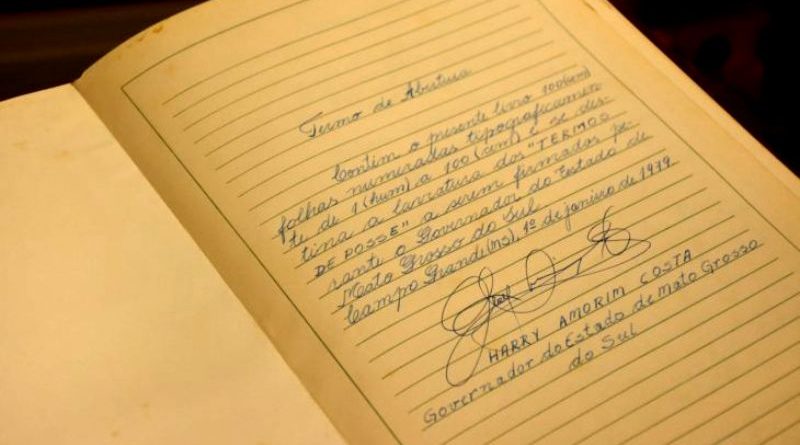 Termo de Abertura
Contém o presente livro 100(cem)
folhas numeradas tipograficamen
te de 1 (hum) a 100 (cem) e se des-
tina a lavratura dos "TERMOS
DE POSSE" a serem firmados pe-
rante o Governador do Estado de
Mato Grosso do Sul.
Campo Grande(MS), 1º de janeiro de 1979
HARRY AMORIM COSTA
Governador do Estado de Mato Grosso
do Sul